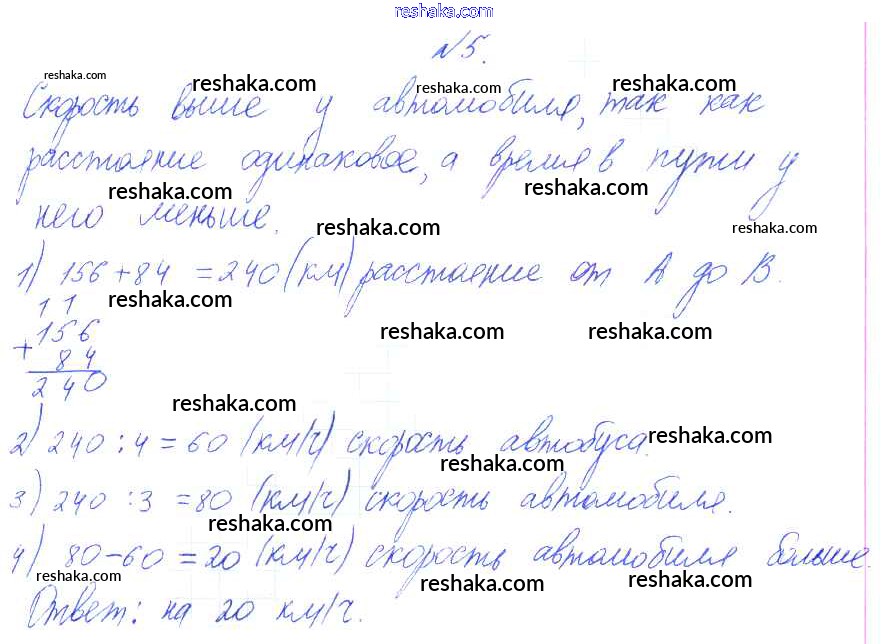 reshaka.com
№5.
reshaka.com reshaka.com reshaka.com reshaka.com
Скорость выше у автомобиля, так как
расстояние одинаковое, а время в пути у
reshaka.com reshaka.com
него меньше.
reshaka.com reshaka.com
1) 156+84 =240 (км) расстояние от А до В.
reshaka.com
1 1
+ 156
84
240
reshaka.com reshaka.com
reshaka.com
2) 240 :4 = 60 (км/ч) скорость автобуса.
reshaka.com
reshaka.com
3) 240 :3 =80 (км/ч) скорость автомобиля.
reshaka.com
4) 80-60 =20 (км/ч) скорость автомобиля больше.
reshaka.com reshaka.com reshaka.com
Ответ: на 20 км/ч.